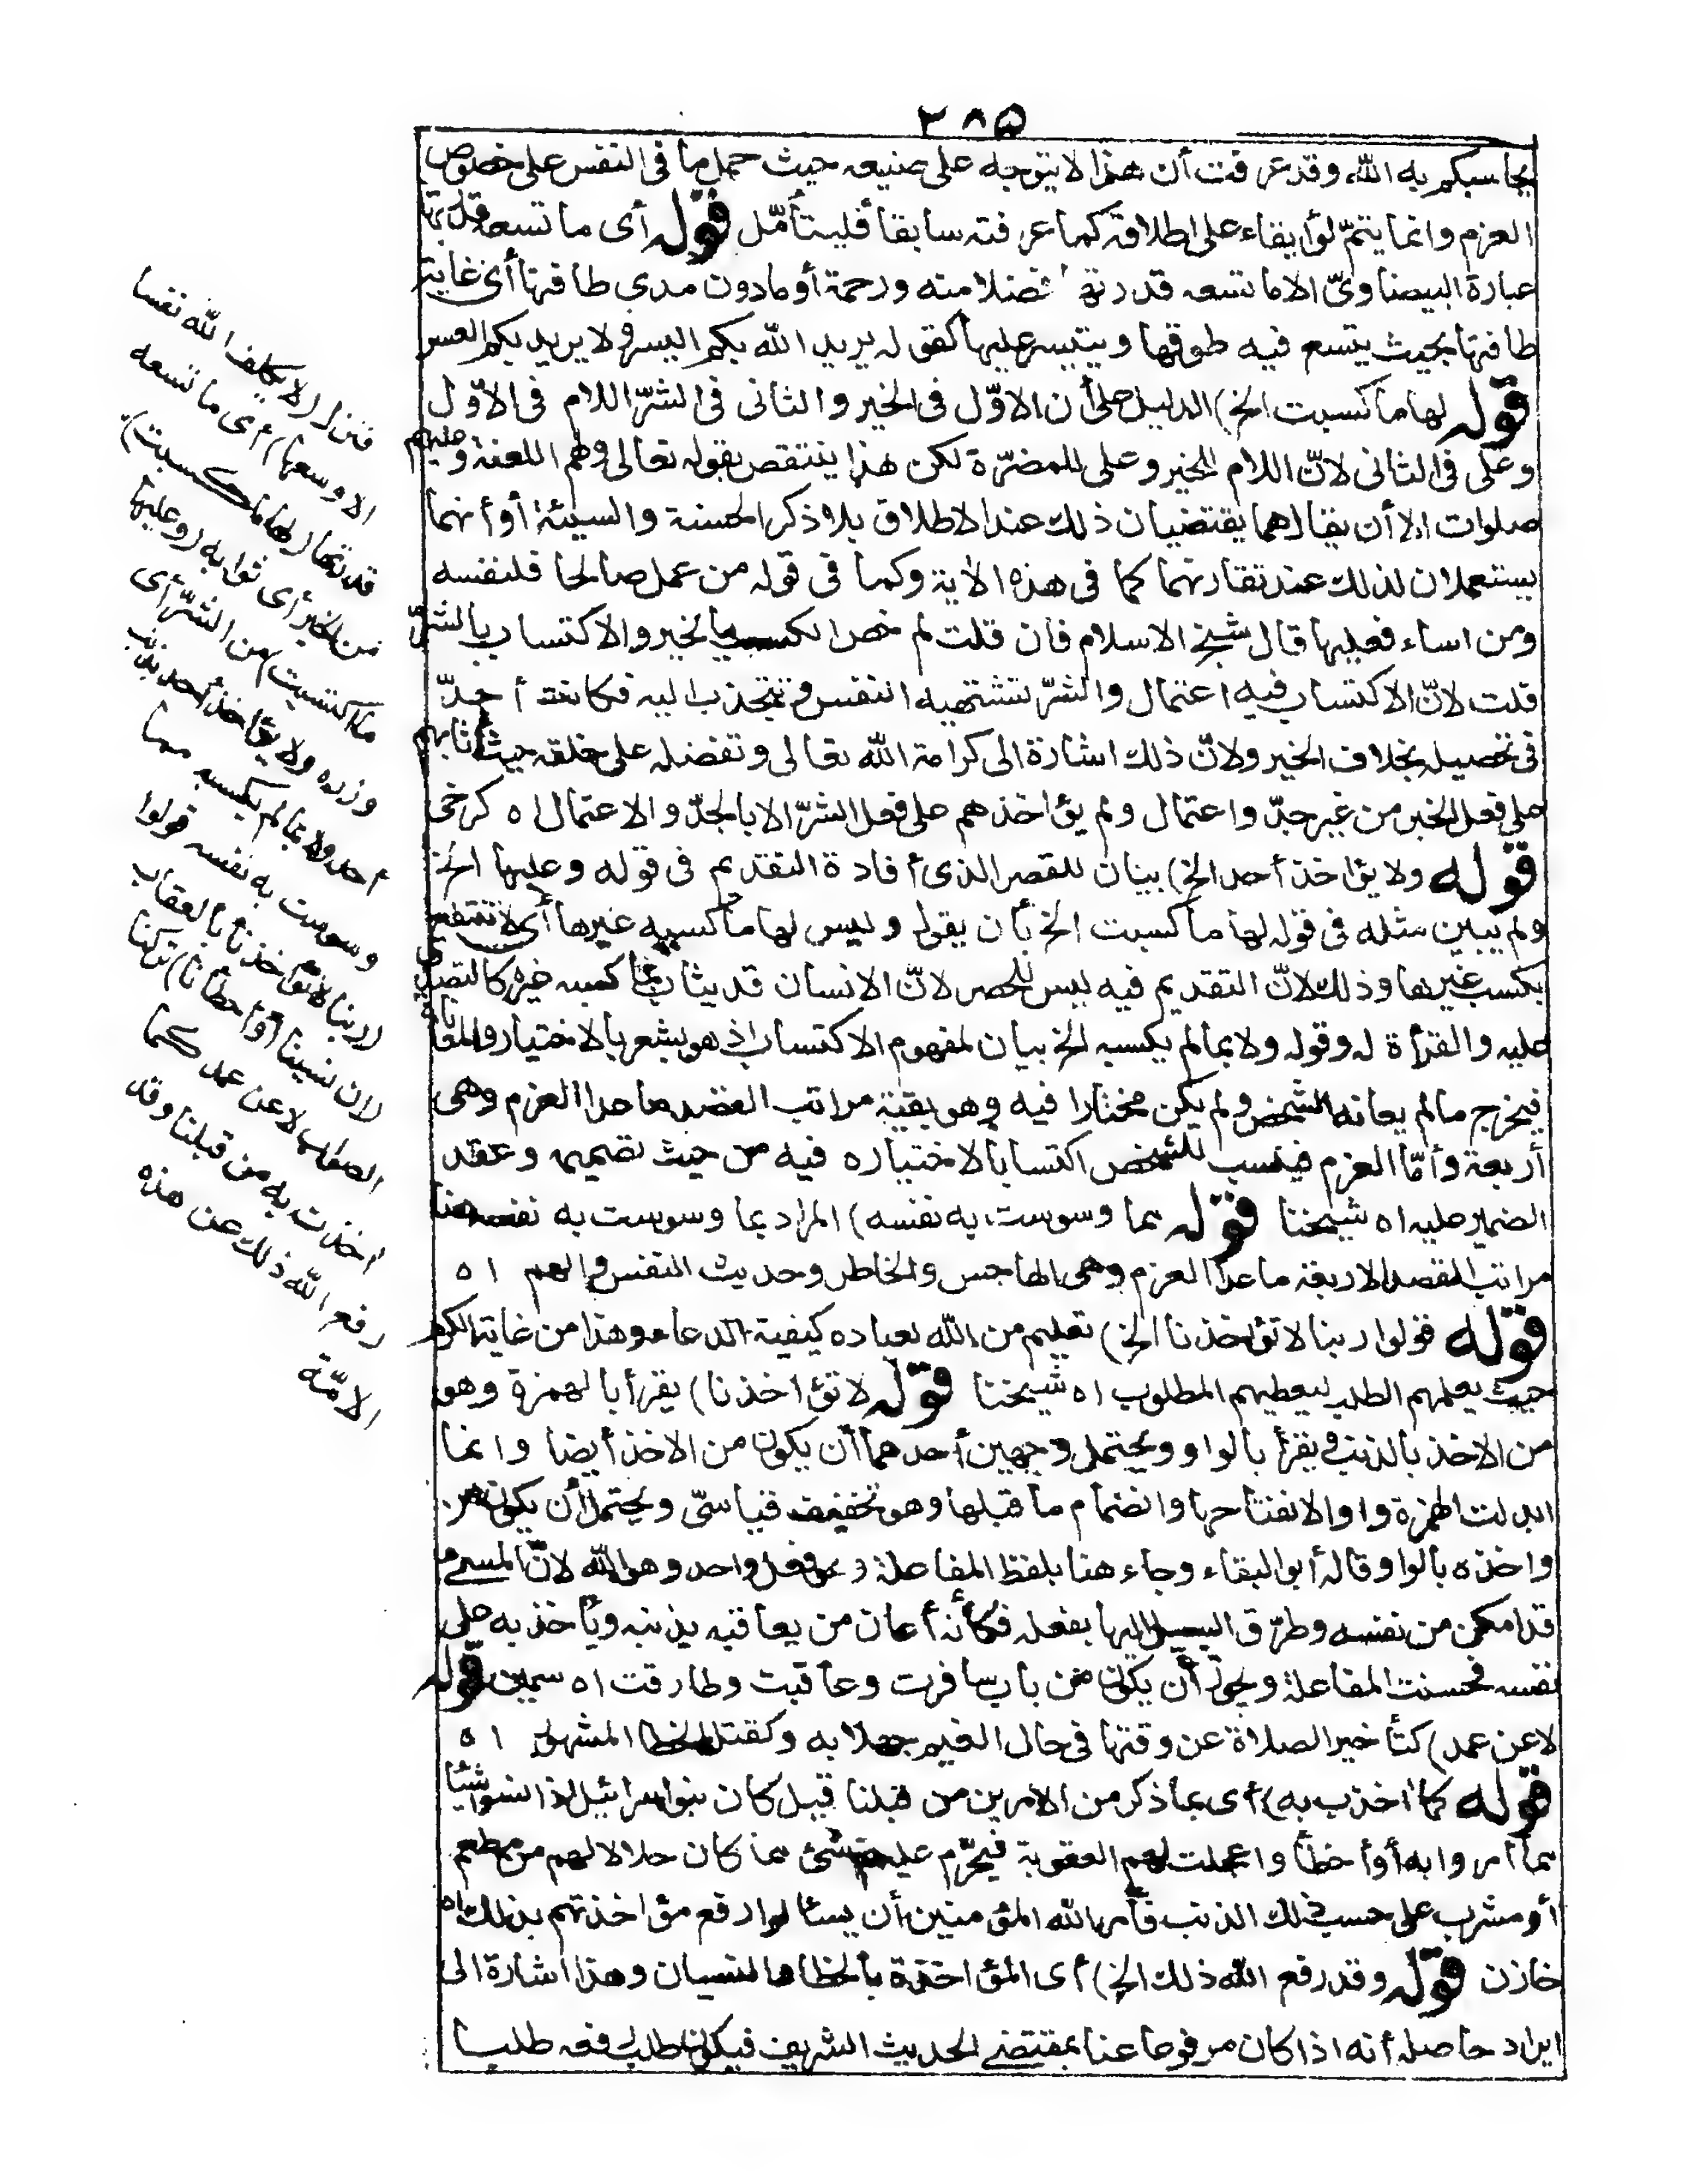 ٢٨٥
يحاسبكم به الله وقد عرفت أن هذا لا يتوجه على صنيعه حيث حمل ما فى النفس على خصوص
العزم وانما يتمّ لو أبقاه على اطلاقه كما عرفته سابقا فليتأمّل قوله أى ما تسعه قدرتها
عبارة البيضاوىّ الا ما تسعه قدرتها فضلا منه ورحمة أو ما دون مدى طاقتها أى غاية
طاقتها بحيث يتسع فيه طوقها ويتيسر عليها كقوله يريد الله بكم اليسر ولا يريد بكم العسر
قوله لها ما كسبت الخ) الدليل على أن الاوّل فى الخير والثانى فى الشرّ اللام فى الاوّل
وعلى فى الثانى لانّ اللام للخير وعلى للمضرّة لكن هذا ينتقص بقوله تعالى ولهم اللعنة وعليهم
صلوات الا أن يقال هما يقتضيان ذلك عند الاطلاق بلا ذكر الحسنة والسيئة أو أنهما
يستعملان لذلك عند تقارنهما كما فى هذه الآية وكما فى قوله من عمل صالحا فلنفسه
ومن اساء فعليها قال شيخ الاسلام فان قلت لم خص الكسب بالخير والاكتساب بالشرّ
قلت لانّ الاكتساب فيه اعتمال والشرّ تشتهيه النفس وتنجذب اليه فكانت أجدّ
فى تحصيله بخلاف الخير ولانّ ذلك اشارة الى كرامة الله تعالى وتفضله على خلقه حيث أثابهم
على فعل الخير من غير جدّ واعتمال ولم يؤاخذهم على فعل الشرّ الا بالجدّ والاعتمال اه كرخى
قوله ولا يؤاخذ أحد الخ) بيان للقصر الذى أفادة التقديم فى قوله وعليها الخ
ولم يبين مثله فى قوله لها ما كسبت الخ بأن يقول وليس لها ما كسبه غيرها أى لا تنتفع
بكسب غيرها وذلك لانّ التقديم فيه ليس للحصر لانّ الانسان قد يثاب بما كسبه غيره كالتصدّق
عليه والقرأة له وقوله ولا بما لم يكسبه الخ بيان لمفهوم الاكتساب اذ هو يشعر بالاختيار والمعاناة
فيخرج ما لم يعانه الشخص ولم يكن مختارا فيه وهو بقية مراتب القصد ما عدا العزم وهى
أربعة وأمّا العزم فينسب للشخص اكتسابا لاختياره فيه من حيث تصميمه وعقد
الضمير عليه اه شيخنا قوله مما وسوست به نفسه) المراد بما وسوست به نفسه هنا
مراتب القصد الاربعة ما عدا العزم وهى الهاجس والخاطر وحديث النفس والهم اه
قوله قولوا ربنا لا تؤاخذنا الخ) تعليم من الله لعباده كيفية الدعاء وهذا من غاية الكرم
حيث يعلمهم الطلب ليعطيهم المطلوب اه شيخنا قوله لا تؤاخذنا) يقرأ بالهمزة وهو
من الاخذ بالذنب ويقرأ بالواو ويحتمل وجهين أحدهما أن يكون من الاخذ أيضا وانما
ابدلت الهمزة واوا لانفتاحها وانضمام ما قبلها وهو تخفيف قياسىّ ويحتمل أن يكون من
واخذه بالواو قاله أبو البقاء وجاء هنا بلفظ المفاعلة وهو فعل واحد وهو الله لانّ المسىء
قد امكن من نفسه وطرّق السبيل اليها بفعله فكأنه أعان من يعاقبه بذنبه ويأخذ به على
نفسه فحسنت المفاعلة ويجوز أن يكون من باب سافرت وعاقبت وطارقت اه سمين قوله
لا عن عمد) كتأخير الصلاة عن وقتها فى حال الغيم جهلا به وكقتل الخطا المشهور اه
قوله كما أخذت به) أى بما ذكر من الامرين من قبلنا قيل كان بنو اسرائيل اذا نسوا شيئا
مما أمروا به أو أخطأوا عجلت لهم العقوبة فيحرّم عليهم شئ مما كان حلالا لهم من مطعم
أو مشرب على حسب ذلك الذنب فأمر الله المؤمنين أن يسئالوا رفع مؤاخذتهم بذلك اه
خازن قوله وقد رفع الله ذلك الخ) أى المؤاخذة بالخطا والنسيان وهذا اشارة الى
ايراد حاصله أنه اذا كان مرفوعا عنا بمقتضى الحديث الشريف فيكون طلب رفعه طلبا
فنزل (لا يكلف الله نفسا
الا وسعها) أى ما تسعه
قدرتها (لها ما كسبت)
من الخير أى ثوابه (وعليها
ما اكتسبت) من الشرّ أى
وزره ولا يؤاخذ أحد بذنب
أحد ولا بما لم يكسبه مما
وسوست به نفسه قولوا
(ربنا لا تؤاخذنا) بالعقاب
(ان نسينا أو أخطأنا) تركنا
الصواب لا عن عمد كما
أخذت به من قبلنا وقد
رفع الله ذلك عن هذه
الامّة